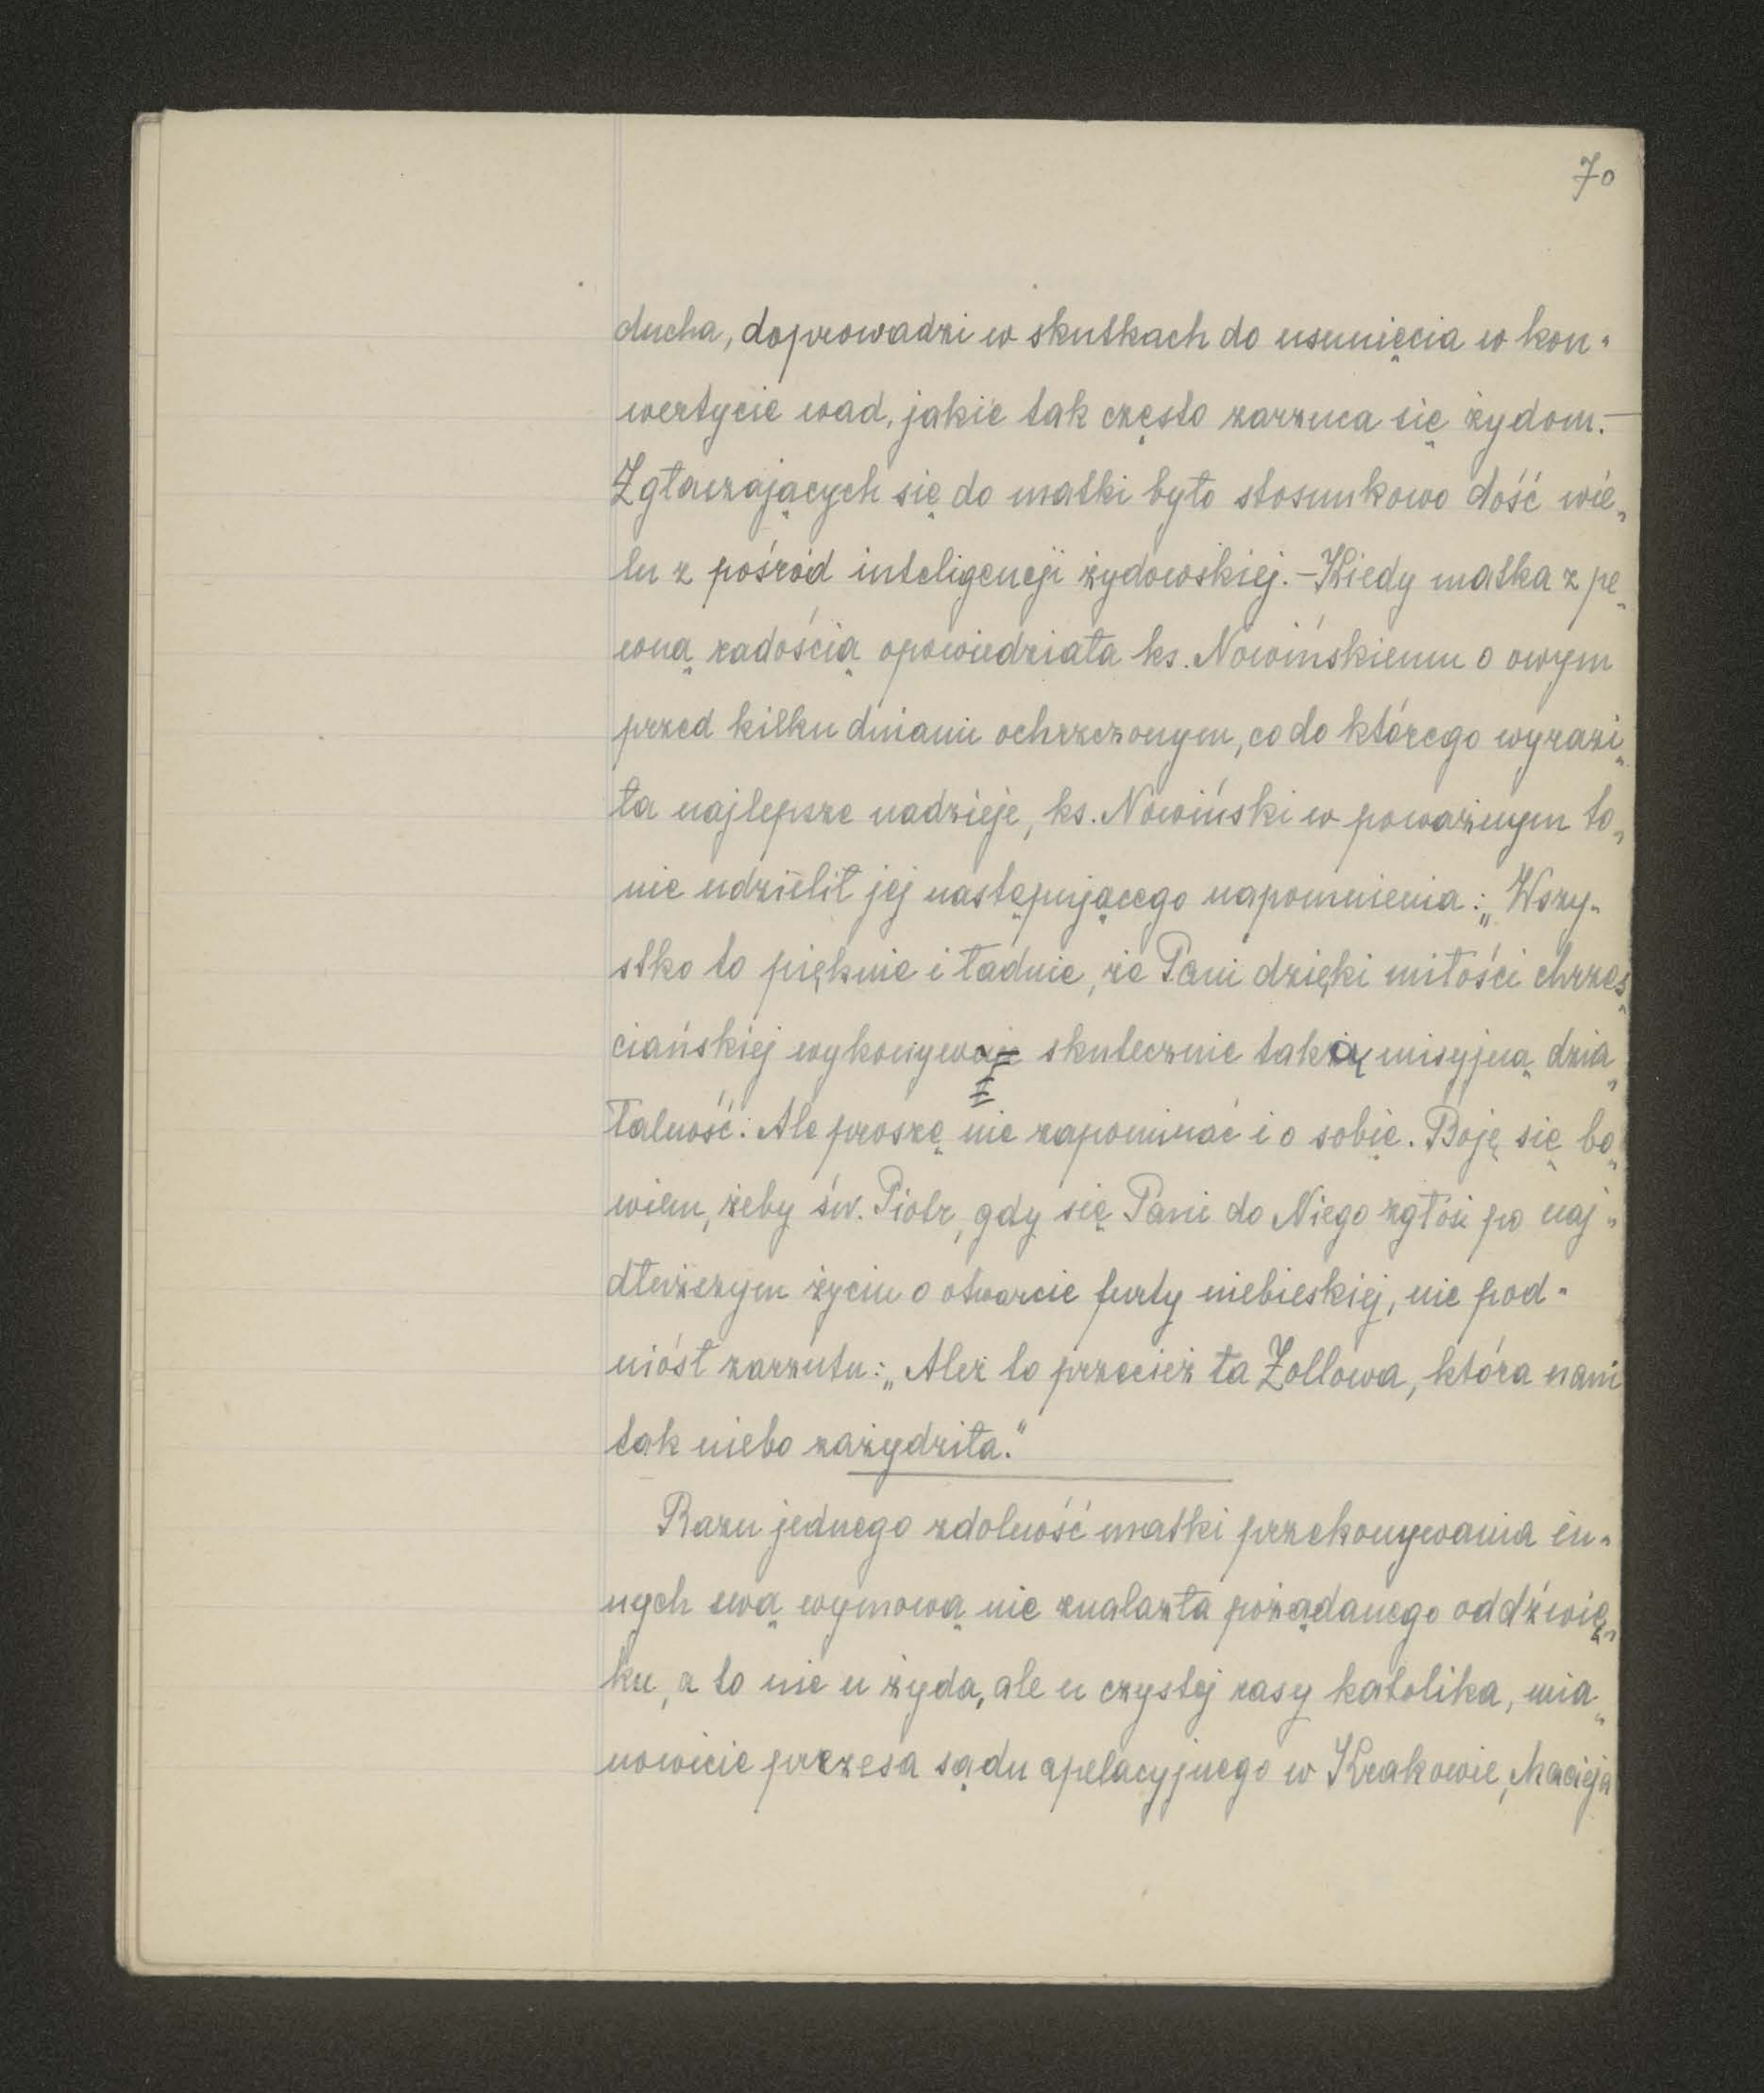 70
ducha, doprowadzi w skutkach do usunięcia w kon-
wertycie wad, jakie tak często zarzuca się żydom.—
Zgłaszających się do matki było stosunkowo dość wie-
lu z pośród inteligencji żydowskiej. – Kiedy matka z pe-
wną radością opowiedziała ks. Nowińskiemu o owym
przed kilku dniami ochrzczonym, co do którego wyrazi-
ła najlepsze nadzieje, ks. Nowiński w poważnym to-
nie udzielił jej następującego napomnienia: „Wszy-
stko to pięknie i ładnie, że Pani dzięki miłości chrześ-
ciańskiej wykonywa skutecznie taką misyjną dzia-
łalność. Ale proszę nie zapominać i o sobie. Boję się bo-
wiem, żeby św. Piotr, gdy się Pani do Niego zgłosi po naj-
dłuższym życiu o otwarcie furty niebieskiej, nie pod-
niósł zarzutu: „Ależ to przecież ta Zollowa, która nam
tak niebo zażydziła."
Razu jednego zdolność matki przekonywania in-
nych swą wymową nie znalazła pożądanego oddźwię-
ku, a to nie u żyda, ale u czystej rasy katolika, mia-
nowicie prezesa sądu apelacyjnego w Krakowie, Macieja